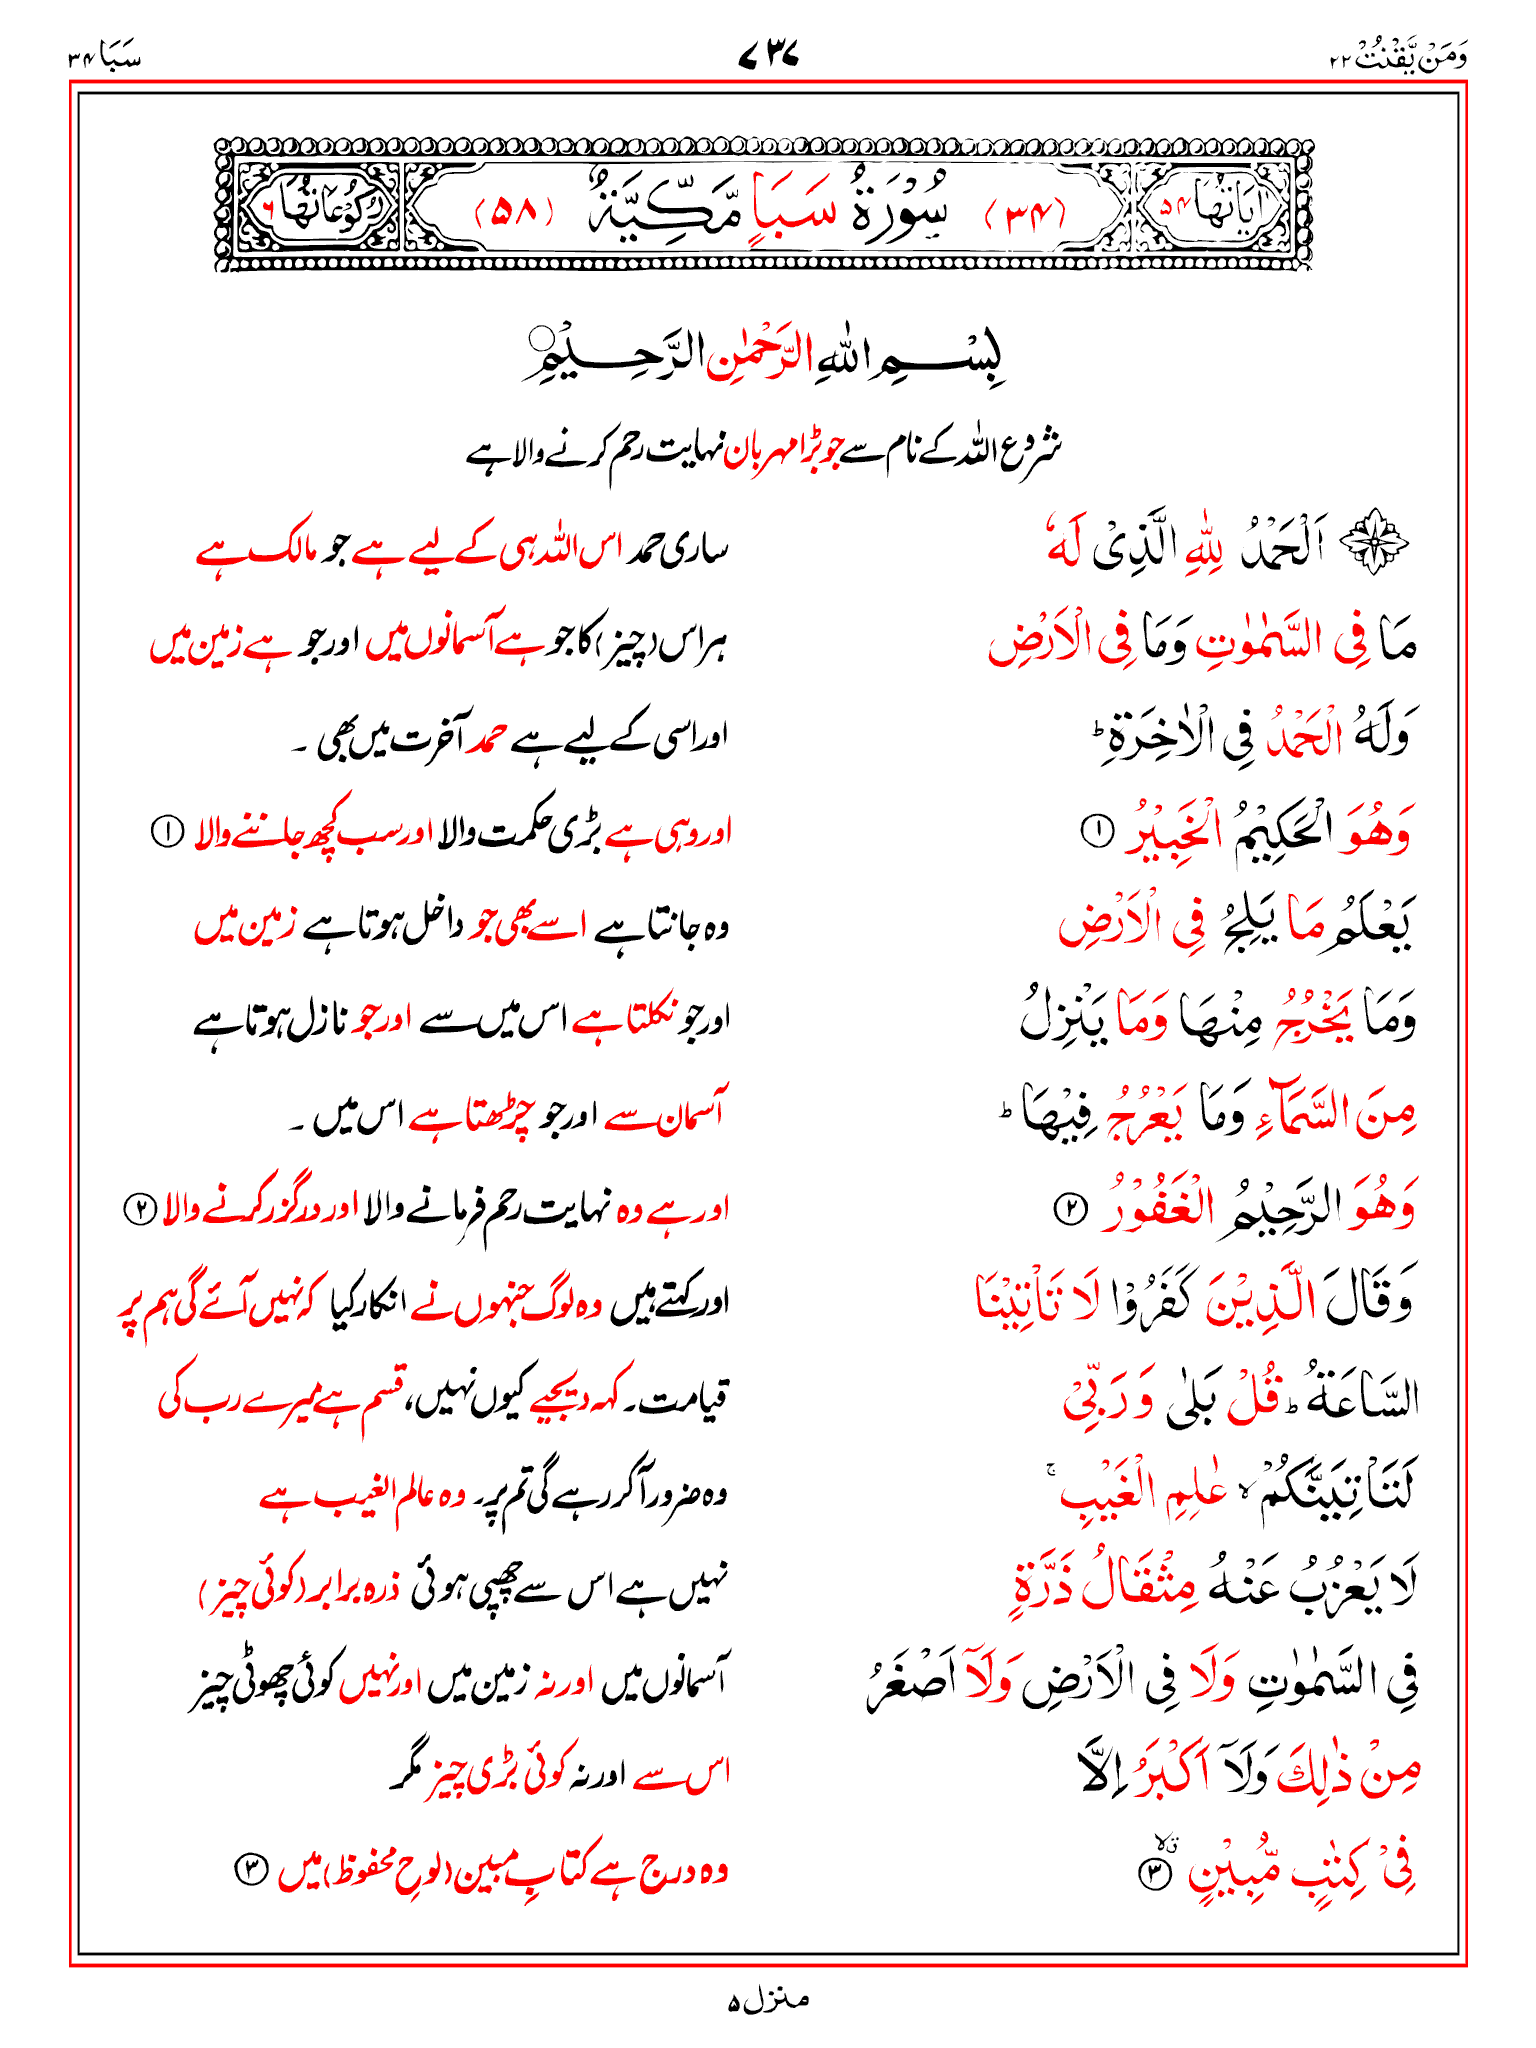 وَمَنْ يَّقْنُتْ ٢٢
٧٣٧
سَبَا ٣۴
اٰيَاتُهَا ۵۴
(٣۴) سُوْرَةُ سَبَاٍ مَّكِّيَّةٌ (۵٨)
رُكُوْعَاتُهَا ۶
بِسْمِ اللّٰهِ الرَّحْمٰنِ الرَّحِيْمِ
شروع اللہ کے نام سے جو بڑا مہربان نہایت رحم کرنے والا ہے
اَلْحَمْدُ لِلّٰهِ الَّذِىْ لَهٗ
ساری حمد اس اللہ ہی کے لیے ہے جو مالک ہے
مَا فِى السَّمٰوٰتِ وَمَا فِى الْاَرْضِ
ہر اس (چیز) کا جو ہے آسمانوں میں اور جو ہے زمین میں
وَلَهُ الْحَمْدُ فِى الْاٰخِرَةِ ؕ
اور اسی کے لیے ہے حمد آخرت میں بھی ۔
وَهُوَ الْحَكِيْمُ الْخَبِيْرُ ①
اور وہی ہے بڑی حکمت والا اور سب کچھ جاننے والا ①
يَعْلَمُ مَا يَلِجُ فِى الْاَرْضِ
وہ جانتا ہے اسے بھی جو داخل ہوتا ہے زمین میں
وَمَا يَخْرُجُ مِنْهَا وَمَا يَنْزِلُ
اور جو نکلتا ہے اس میں سے اور جو نازل ہوتا ہے
مِنَ السَّمَآءِ وَمَا يَعْرُجُ فِيْهَا ؕ
آسمان سے اور جو چڑھتا ہے اس میں ۔
وَهُوَ الرَّحِيْمُ الْغَفُوْرُ ②
اور ہے وہ نہایت رحم فرمانے والا اور درگزر کرنے والا ②
وَقَالَ الَّذِيْنَ كَفَرُوْا لَا تَاْتِيْنَا
اور کہتے ہیں وہ لوگ جنہوں نے انکار کیا کہ نہیں آئے گی ہم پر
السَّاعَةُ ؕ قُلْ بَلٰى وَرَبِّىْ
قیامت۔ کہہ دیجیے کیوں نہیں، قسم ہے میرے رب کی
لَتَاْتِيَنَّكُمْ ۙ عٰلِمِ الْغَيْبِ ۚ
وہ ضرور آکر رہے گی تم پر۔ وہ عالم الغیب ہے
لَا يَعْزُبُ عَنْهُ مِثْقَالُ ذَرَّةٍ
نہیں ہے اس سے چھپی ہوئی ذرہ برابر (کوئی چیز)
فِى السَّمٰوٰتِ وَلَا فِى الْاَرْضِ وَلَآ اَصْغَرُ
آسمانوں میں اور نہ زمین میں اور نہیں کوئی چھوٹی چیز
مِنْ ذٰلِكَ وَلَآ اَكْبَرُ اِلَّا
اس سے اور نہ کوئی بڑی چیز مگر
فِىْ كِتٰبٍ مُّبِيْنٍ ③
وہ درج ہے کتابِ مبین (لوحِ محفوظ) میں ③
منزل ۵